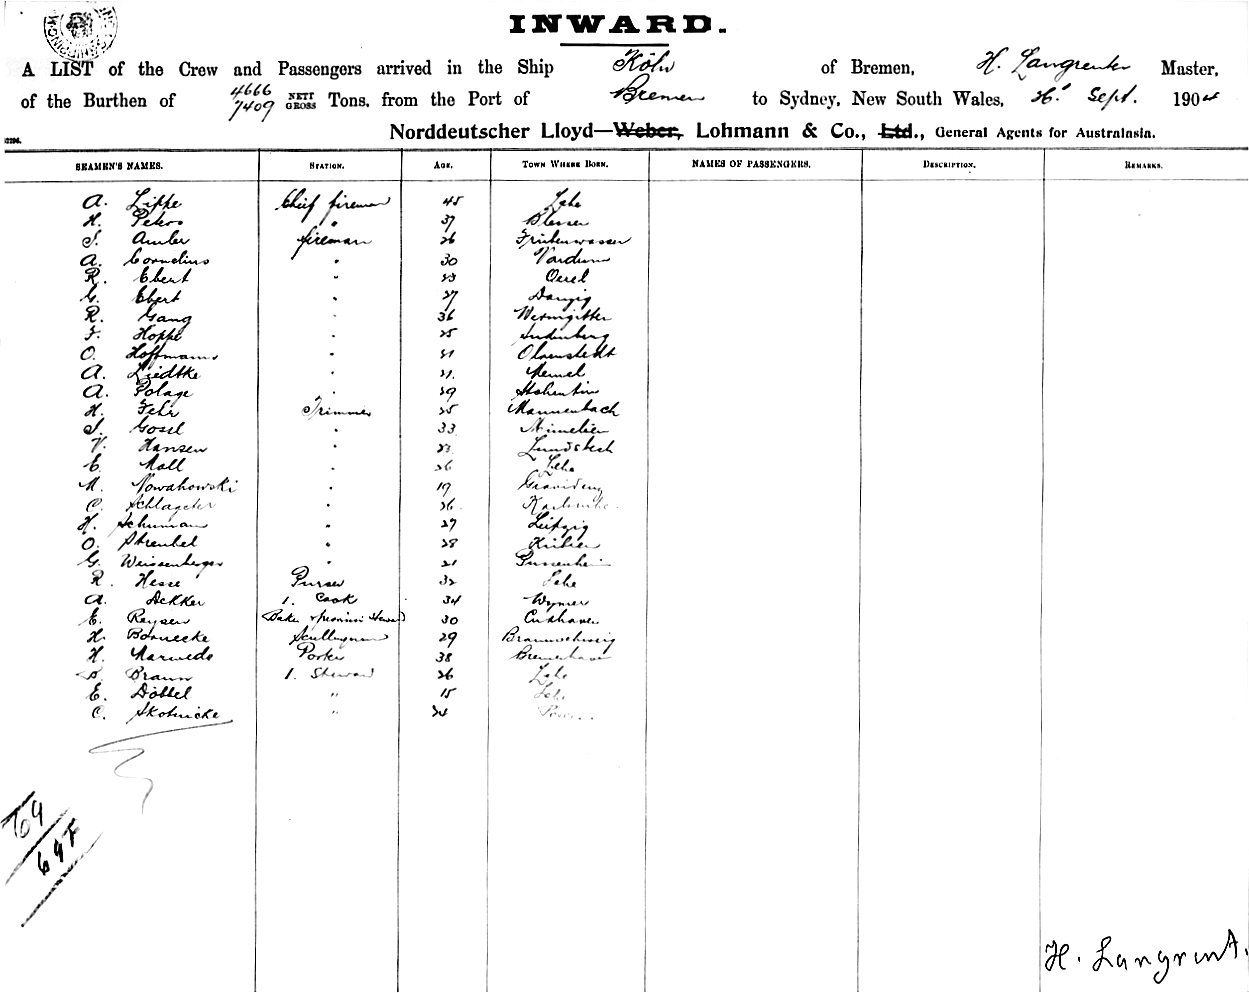 INWARD.
A LIST of the Crew and Passengers arrived in the Ship Köln of Bremen, H. Langreuter Master,
of the Burthen of 4666 NETT 7409 GROSS Tons, from the Port of Bremen to Sydney, New South Wales, Sept. 1904
Norddeutscher Lloyd—Weber, Lohmann & Co., Ltd., General Agents for Australasia.
SEAMEN'S NAMES. STATION. AGE. TOWN WHERE BORN. NAMES OF PASSENGERS. DESCRIPTION. REMARKS.
A. Lippe Chief fireman 45 Lehe
H. Peters " 37
J. Amler fireman 26
A. Cornelius " 30
R. Ebert " 23
G. Ebert " 27 Danzig
R. Gang " 36 Wormgitter
F. Hoppe " 25 Sudenberg
O. Hoffmann " 21 Olvenstedt
A. Liedtke " 21. Memel
A. Polage " 29
H. Fehr Trimmer 25 Mannenbach
J. Gosel " 33
V. Hansen " 23
E. Mall " 26 Lehe
M. Nowakowski " 19
C. Schlageter " 26. Karlsruhe
H. Schuman " 27 Leipzig
O. Strenkel " 28
G. Weissenberger " 21
R. Hesse Purser 32 Lehe
A. Dekker 1. Cook 34 Wymer
E. Reysen Baker & provision Steward 30 Cuxhaven
H. Bornecke Scullryman 29 Braunschweig
H. Marwede Porter 38 Bremerhaven
Braun 1. Steward 26 Lehe
E. Döbbel " 15 Lehe
C. Skotnicke " 24
69
69
H. Langreut.